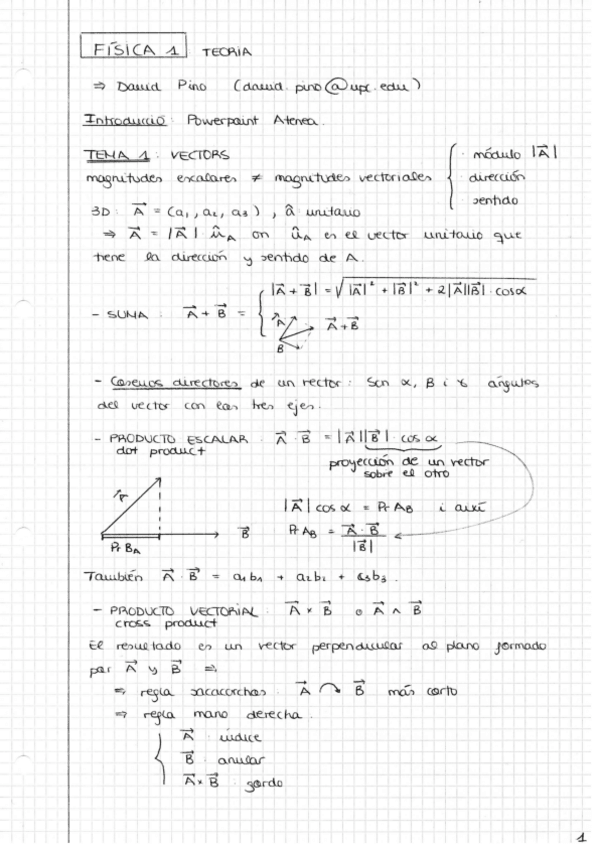 FÍSICA 1 TEORIA
⇒ David Pino (david.pino@upc.edu)
Introducció: Powerpoint Atenea.
TEMA 1: VECTORS
magnitudes escalares ≠ magnitudes vectoriales { · módulo |A⃗| · dirección · sentido
3D: A⃗ = (a₁, a₂, a₃), â unitario
⇒ A⃗ = |A⃗| · û_A on û_A es el vector unitario que
tiene la dirección y sentido de A.
- SUMA: A⃗ + B⃗ = { |A⃗ + B⃗| = √|A⃗|² + |B⃗|² + 2|A⃗||B⃗| · cosα
A B A⃗ + B⃗
- Cosenos directores de un vector: Son α, β i γ ángulos
del vector con los tres ejes.
- PRODUCTO ESCALAR: A⃗ · B⃗ = |A⃗||B⃗| · cos α
dot product
proyección de un vector
sobre el otro
A⃗ B⃗ Pr B_A
|A⃗| cos α = Pr A_B i així
Pr A_B = A⃗ · B⃗ / |B⃗|
También A⃗ · B⃗ = a₁b₁ + a₂b₂ + a₃b₃.
- PRODUCTO VECTORIAL: A⃗ × B⃗ o A⃗ ∧ B⃗
cross product
El resultado es un vector perpendicular al plano formado
por A⃗ y B⃗ ⇒
⇒ regla sacacorchos. A⃗ ↷ B⃗ más corto
⇒ regla mano derecha.
A⃗ · índice
B⃗ · anular
A⃗ × B⃗ · gordo
1